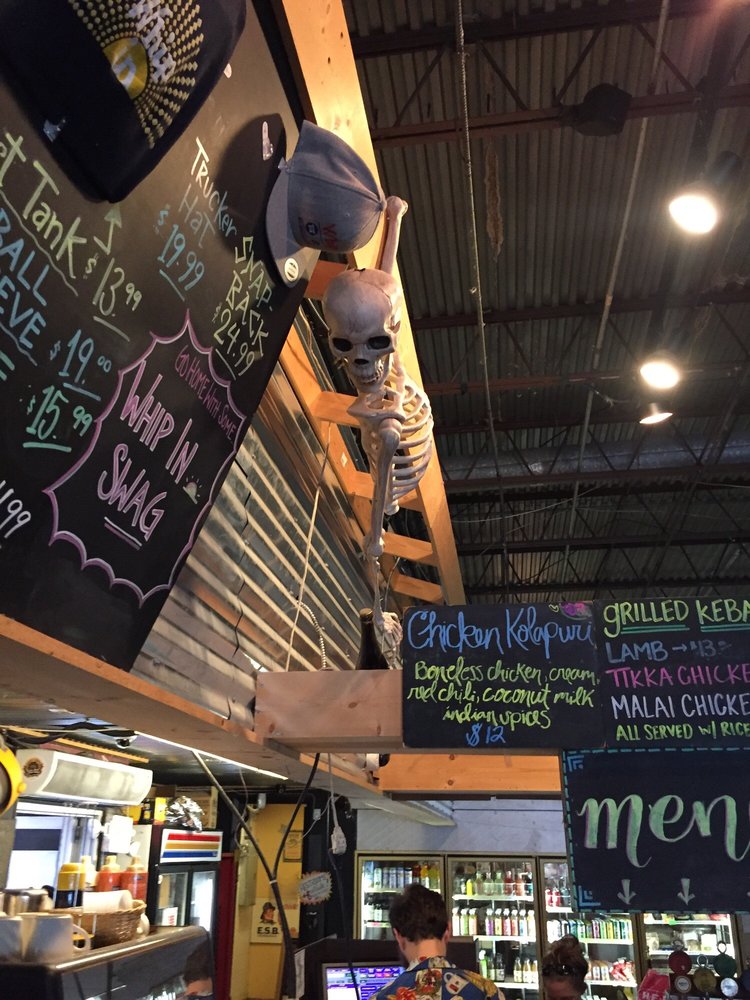 Tank $13.99
BALL
$19.00
$15.99
Trucker
Hat
$19.99
SNAP-
BACK
$24.99
GO HOME WITH SOME
WHIP IN
SWAG
4.99
Chicken Kolapuri
Boneless chicken, cream,
red chili, coconut milk
indian spices
$12
GRILLED KEBA
LAMB → $13
TIKKA CHICKE
MALAI CHICKE
ALL SERVED W/ RICE
men
E.S.B.